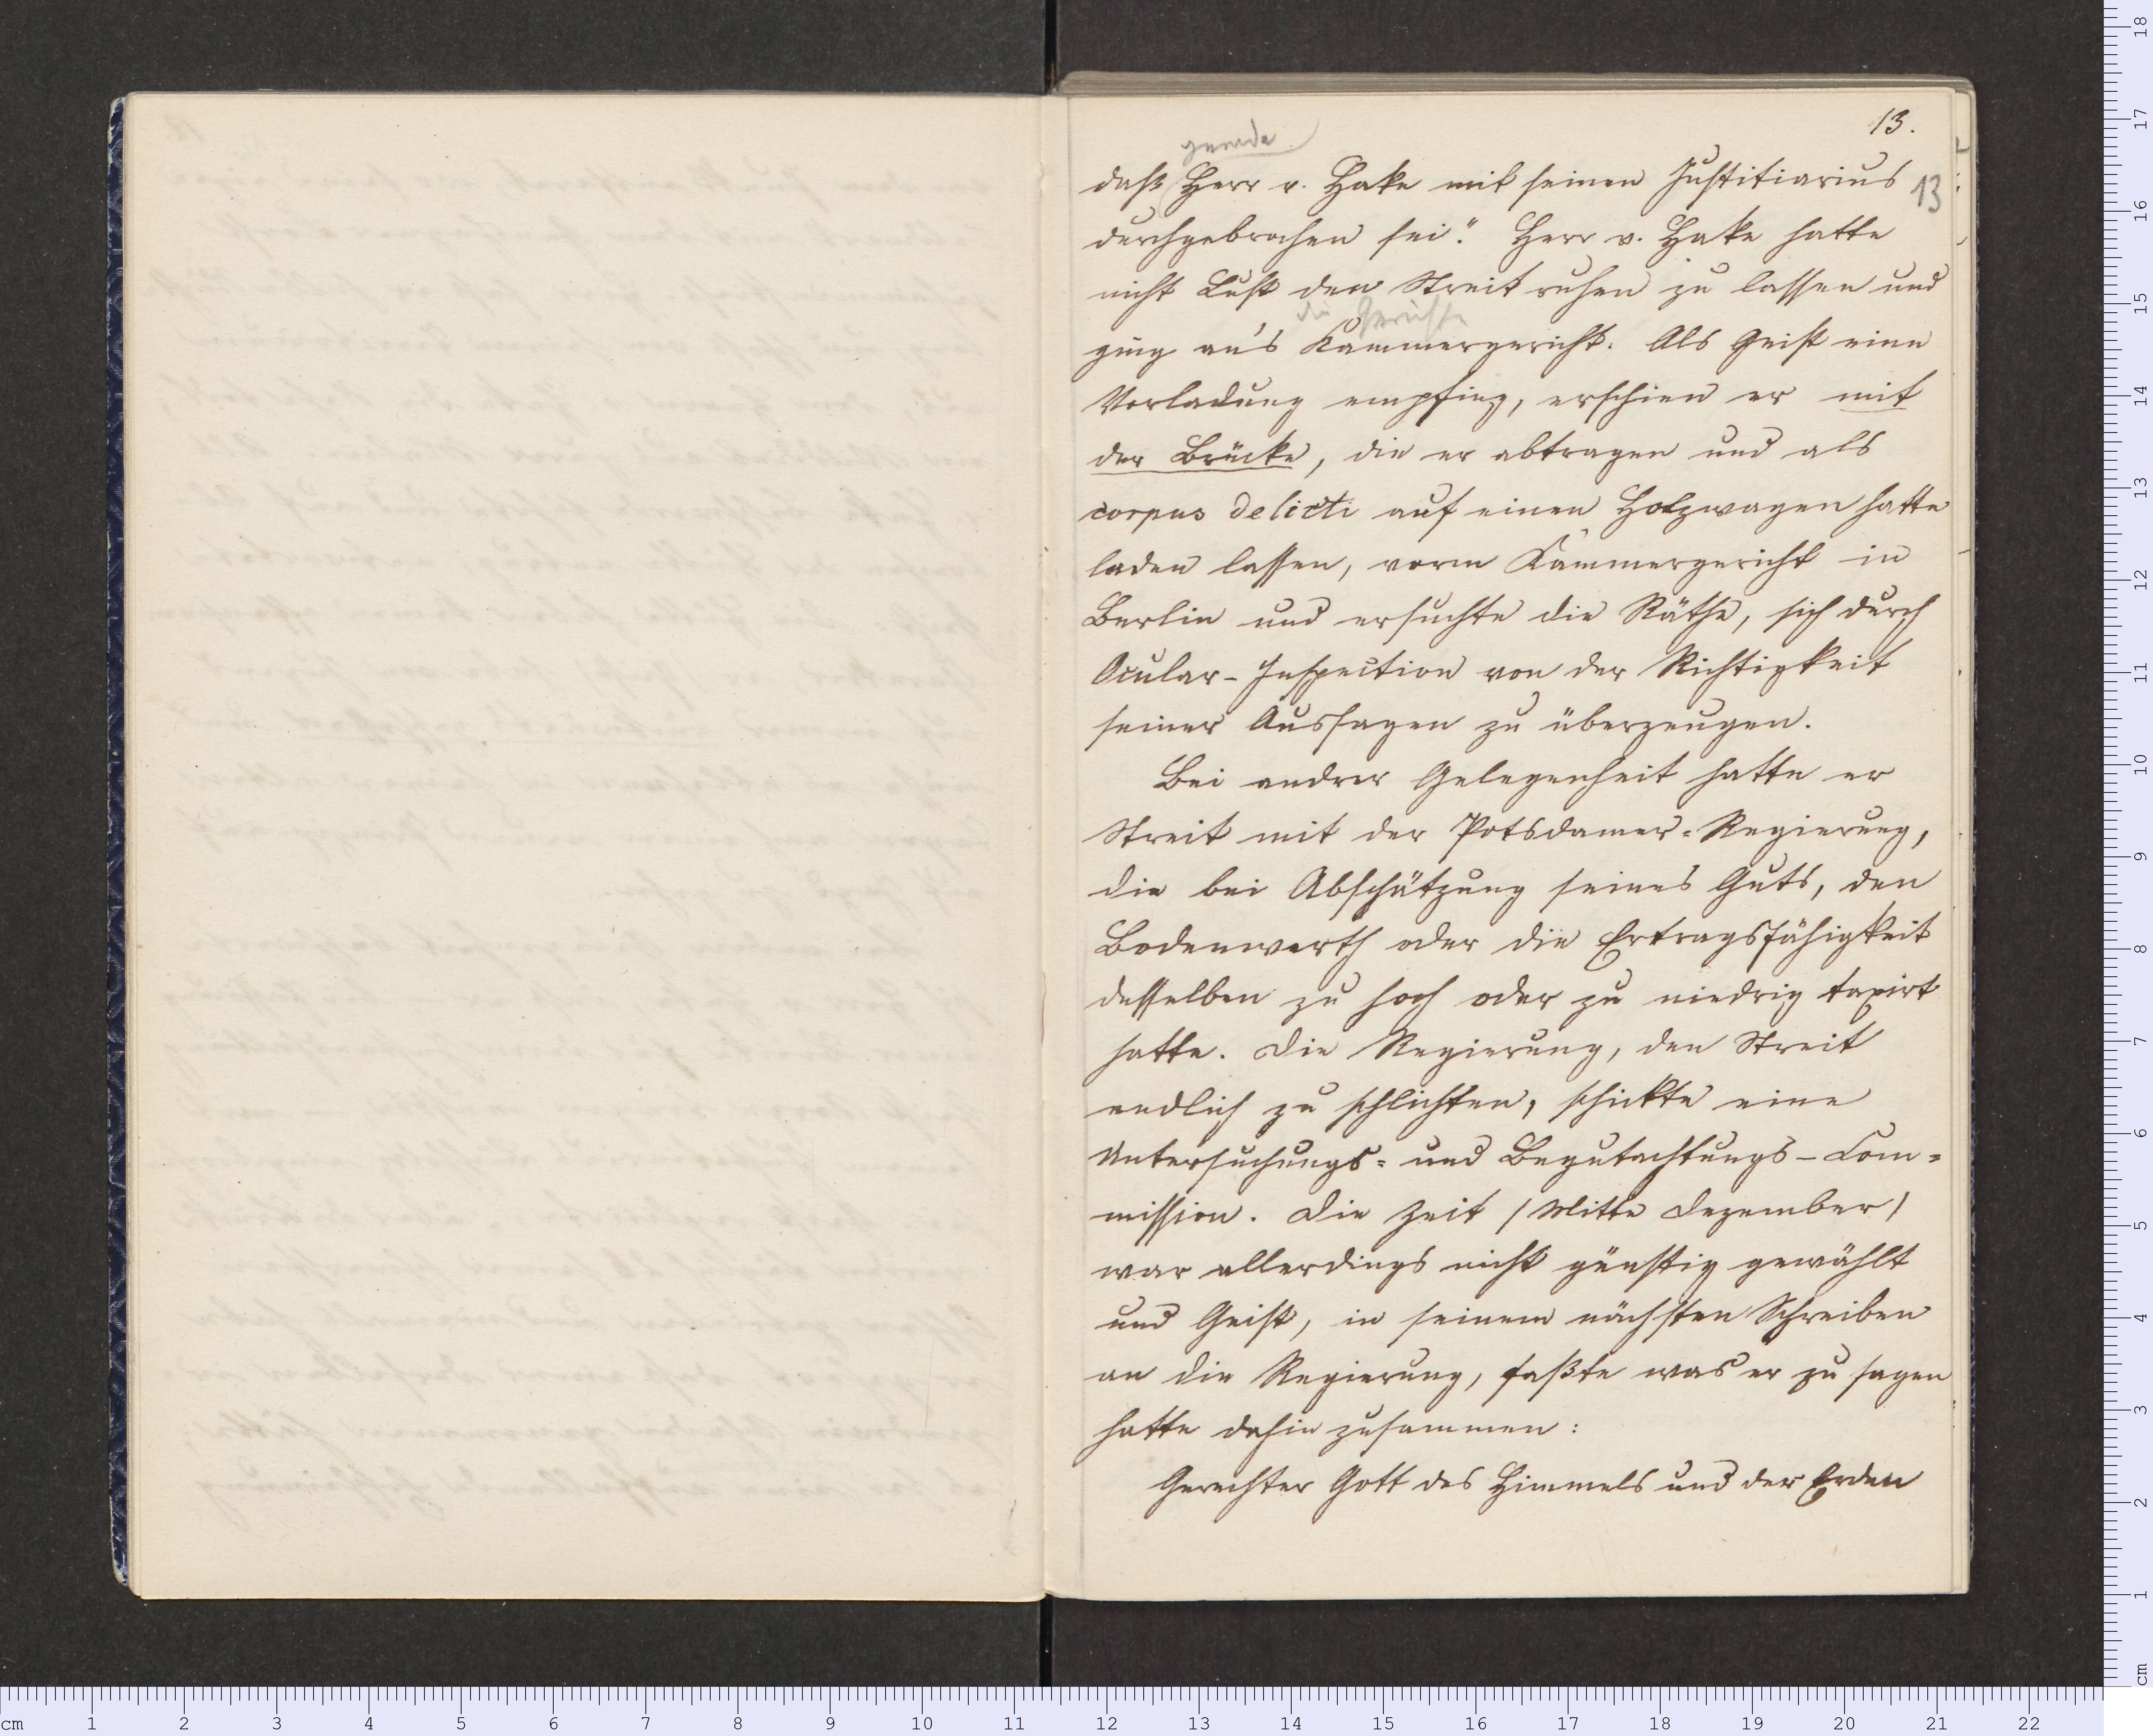 13.
gerade
daß Herr v. Hake mit seinen Justitiarius
13
durchgebrochen sei“. Herr v. Hake hatte
nicht Lust den Streit ruhen zu lassen und
die Gerichte
ging an's Kammergericht. Als Geist eine
Vorladung empfing, erschien er mit
der Brücke, die er abtragen und als
corpus delicti auf einen Holzwagen hatte
laden lassen, vorm Kammergericht in
Berlin und ersuchte die Räthe, sich durch
Ocular-Inspection von der Richtigkeit
seiner Aussagen zu überzeugen.
Bei andrer Gelegenheit hatte er
Streit mit der Potsdamer-Regierung,
die bei Abschätzung seines Guts, den
Bodenwerth oder die Ertragsfähigkeit
desselben zu hoch oder zu niedrig taxirt
hatte. Die Regierung, den Streit
endlich zu schlichten, schickte eine
Untersuchungs- und Begutachtungs-Com-
mission. Die Zeit (Mitte Dezember)
war allerdings nicht günstig gewählt
und Geist, in seinem nächsten Schreiben
an die Regierung, faßte was er zu sagen
hatte dahin zusammen:
Gerechter Gott des Himmels und der Erden